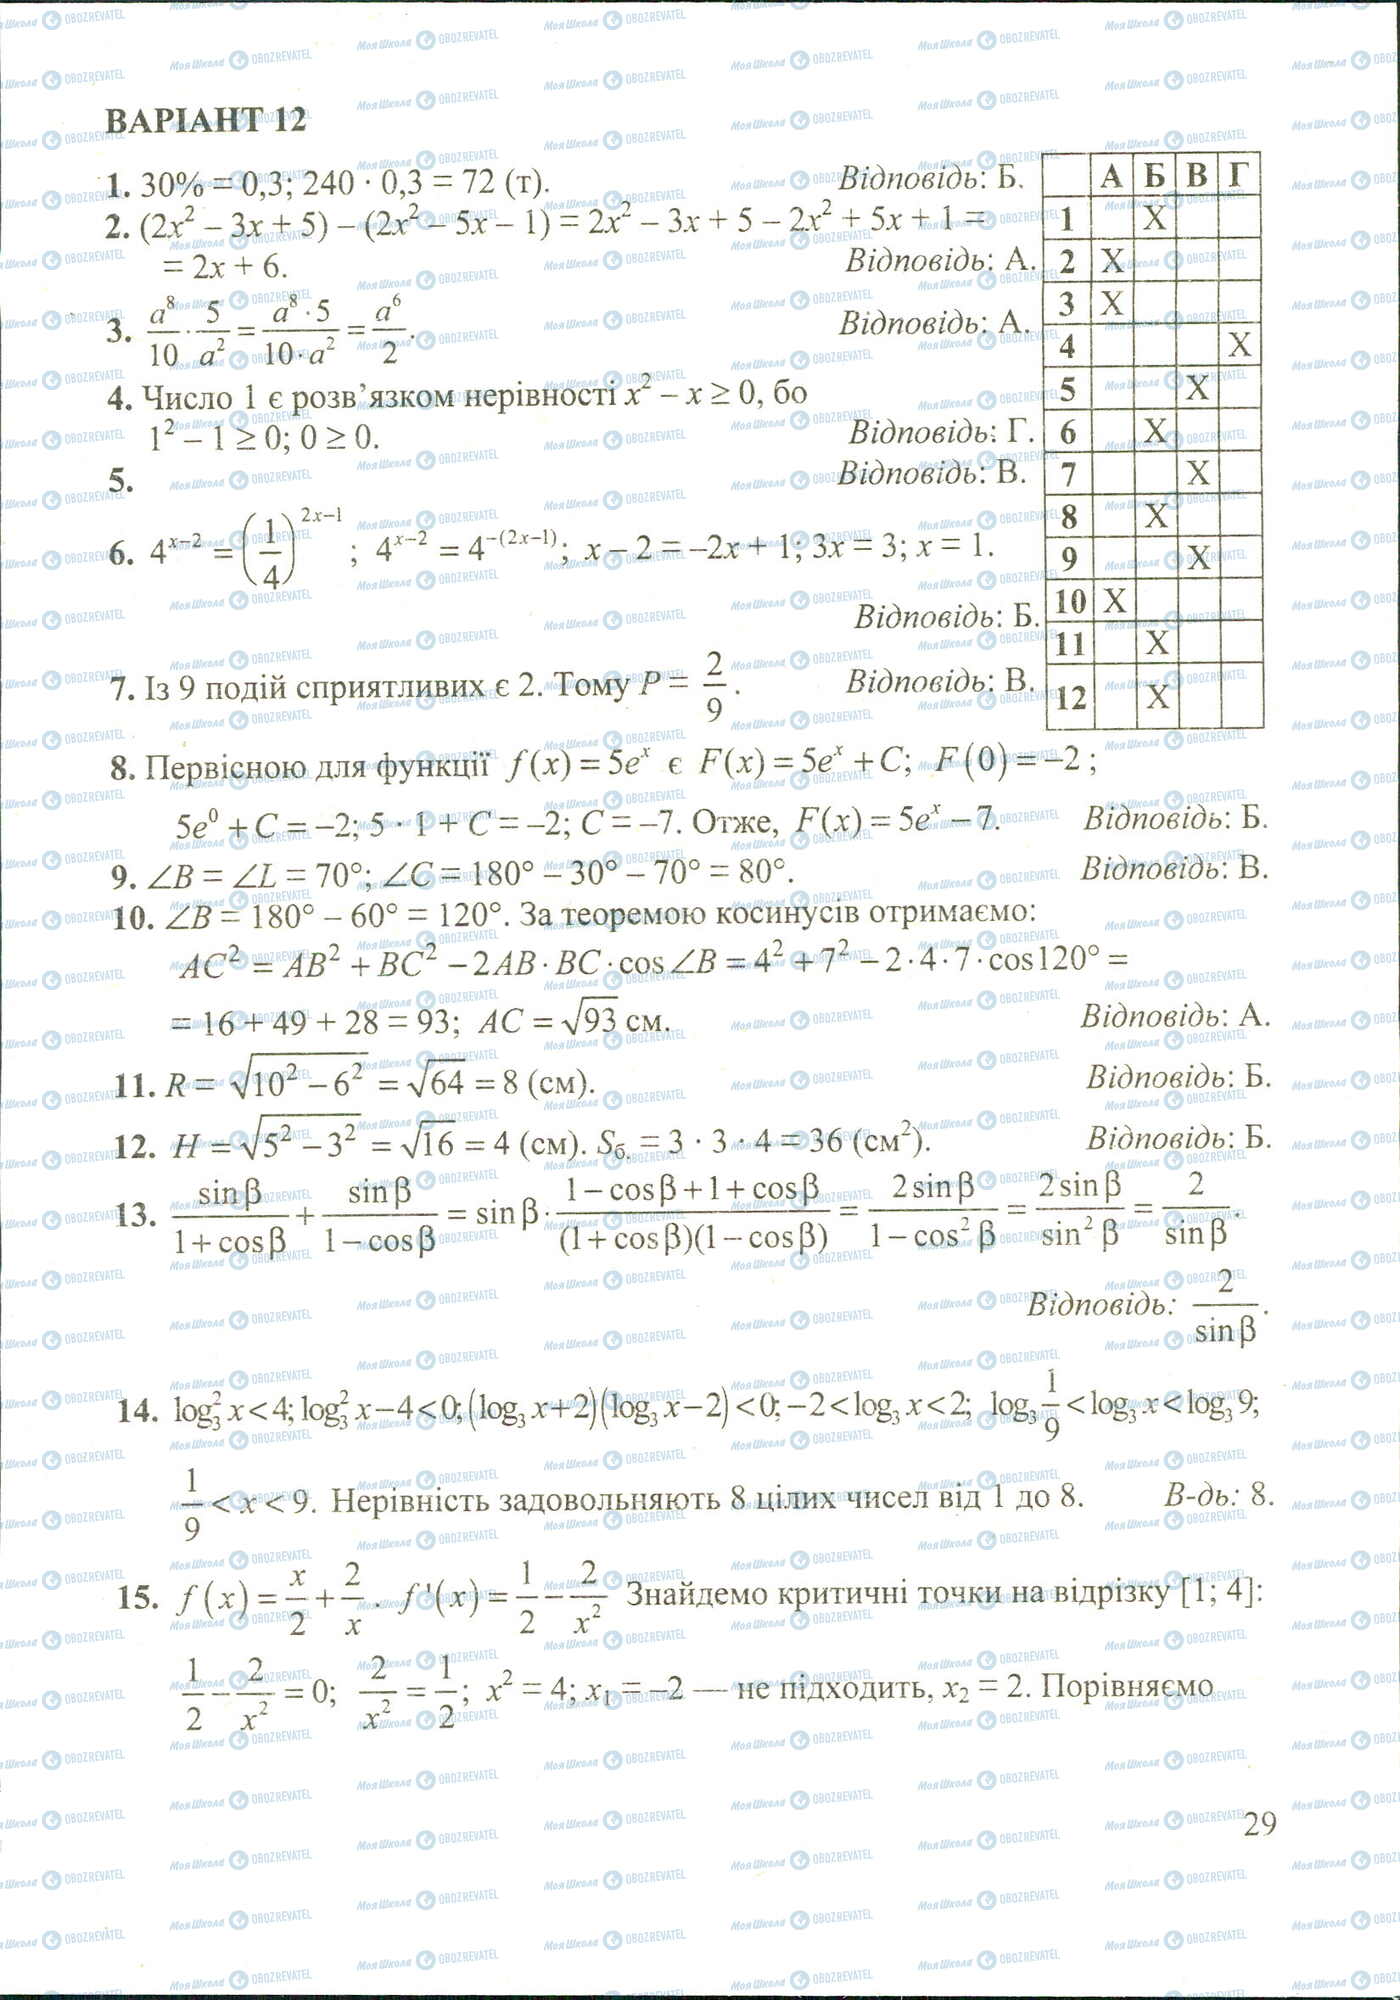 ВАРІАНТ 12
1. 30% = 0,3; 240 · 0,3 = 72 (т). Відповідь: Б.
2. (2x² – 3x + 5) – (2x² – 5x – 1) = 2x² – 3x + 5 – 2x² + 5x + 1 =
= 2x + 6. Відповідь: А.
3. a⁸/10 · 5/a² = (a⁸ · 5)/(10 · a²) = a⁶/2. Відповідь: А.
4. Число 1 є розв’язком нерівності x² – x ≥ 0, бо
1² – 1 ≥ 0; 0 ≥ 0. Відповідь: Г.
5. Відповідь: В.
6. 4^(x–2) = (1/4)^(2x–1); 4^(x–2) = 4^(–(2x–1)); x – 2 = –2x + 1; 3x = 3; x = 1.
Відповідь: Б.
7. Із 9 подій сприятливих є 2. Тому P = 2/9. Відповідь: В.
А Б В Г
1 X
2 X
3 X
4 X
5 X
6 X
7 X
8 X
9 X
10 X
11 X
12 X
8. Первісною для функції f(x) = 5eˣ є F(x) = 5eˣ + C; F(0) = –2;
5e⁰ + C = –2; 5 · 1 + C = –2; C = –7. Отже, F(x) = 5eˣ – 7. Відповідь: Б.
9. ∠B = ∠L = 70°; ∠C = 180° – 30° – 70° = 80°. Відповідь: В.
10. ∠B = 180° – 60° = 120°. За теоремою косинусів отримаємо:
AC² = AB² + BC² – 2AB · BC · cos∠B = 4² + 7² – 2 · 4 · 7 · cos120° =
= 16 + 49 + 28 = 93; AC = √93 см. Відповідь: А.
11. R = √(10² – 6²) = √64 = 8 (см). Відповідь: Б.
12. H = √(5² – 3²) = √16 = 4 (см). Sб. = 3 · 3 · 4 = 36 (см²). Відповідь: Б.
13. sinβ/(1 + cosβ) + sinβ/(1 – cosβ) = sinβ · (1 – cosβ + 1 + cosβ)/((1 + cosβ)(1 – cosβ)) = 2sinβ/(1 – cos²β) = 2sinβ/sin²β = 2/sinβ.
Відповідь: 2/sinβ.
14. log₃²x < 4; log₃²x – 4 < 0; (log₃x + 2)(log₃x – 2) < 0; –2 < log₃x < 2; log₃1/9 < log₃x < log₃9;
1/9 < x < 9. Нерівність задовольняють 8 цілих чисел від 1 до 8. В-дь: 8.
15. f(x) = x/2 + 2/x. f'(x) = 1/2 – 2/x² Знайдемо критичні точки на відрізку [1; 4]:
1/2 – 2/x² = 0; 2/x² = 1/2; x² = 4; x₁ = –2 — не підходить, x₂ = 2. Порівняємо
29
Моя Школа OBOZREVATEL